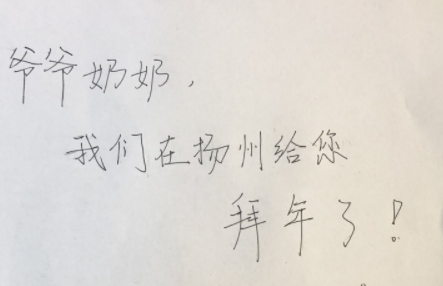 爷爷奶奶，
我们在扬州给您
拜年了！